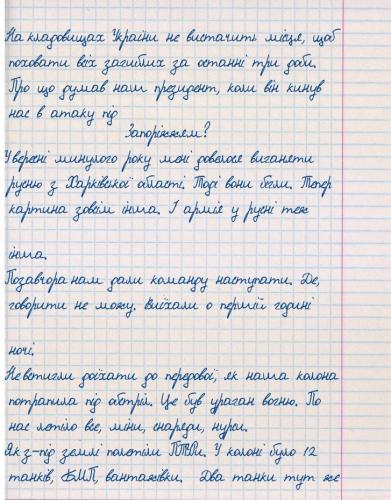 На кладовищах України не вистачить місця, щоб
поховати всіх загиблих за останні три доби.
Про що думав наш президент, коли він кинув
нас в атаку під
Запоріжжям?
У вересні минулого року мені довелося виганяти
русню з Харківської області. Тоді вони бігли. Тепер
картина зовсім інша. І армія у русні теж
інша.
Позавчора нам дали команду наступати. Де,
говорити не можу. Виїхали о першій годині
ночі.
Не встигли доїхати до передової, як наша колона
потрапила під обстріл. Це був ураган вогню. По
нас летіло все, міни, снаряди, нурси.
Як з-під землі полетіли ПТУРи. У колоні було 12
танків, БМП, вантажівки. Два танки тут же